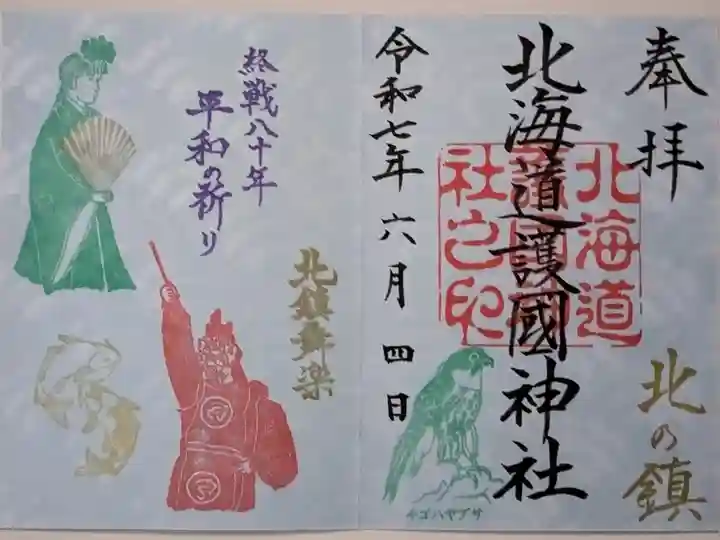 奉拝
北海道護國神社
北海道護國神社之印
北の鎮
令和七年六月四日
チゴハヤブサ
終戦八十年
平和の祈り
北鎮舞楽